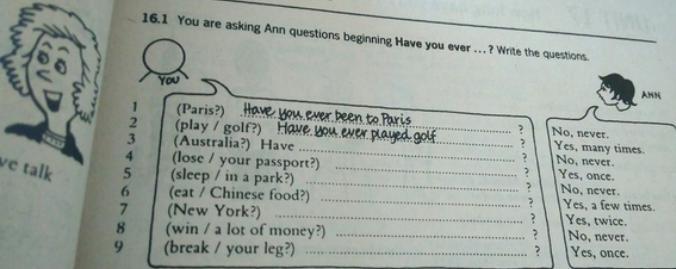 16.1 You are asking Ann questions beginning Have you ever ... ? Write the questions.
YOU
ANN
1 (Paris?) Have you ever been to Paris ? No, never.
2 (play / golf?) Have you ever played golf ? Yes, many times.
3 (Australia?) Have ? No, never.
4 (lose / your passport?) ? Yes, once.
5 (sleep / in a park?) ? No, never.
6 (eat / Chinese food?) ? Yes, a few times.
7 (New York?) ? Yes, twice.
8 (win / a lot of money?) ? No, never.
9 (break / your leg?) ? Yes, once.
ve talk